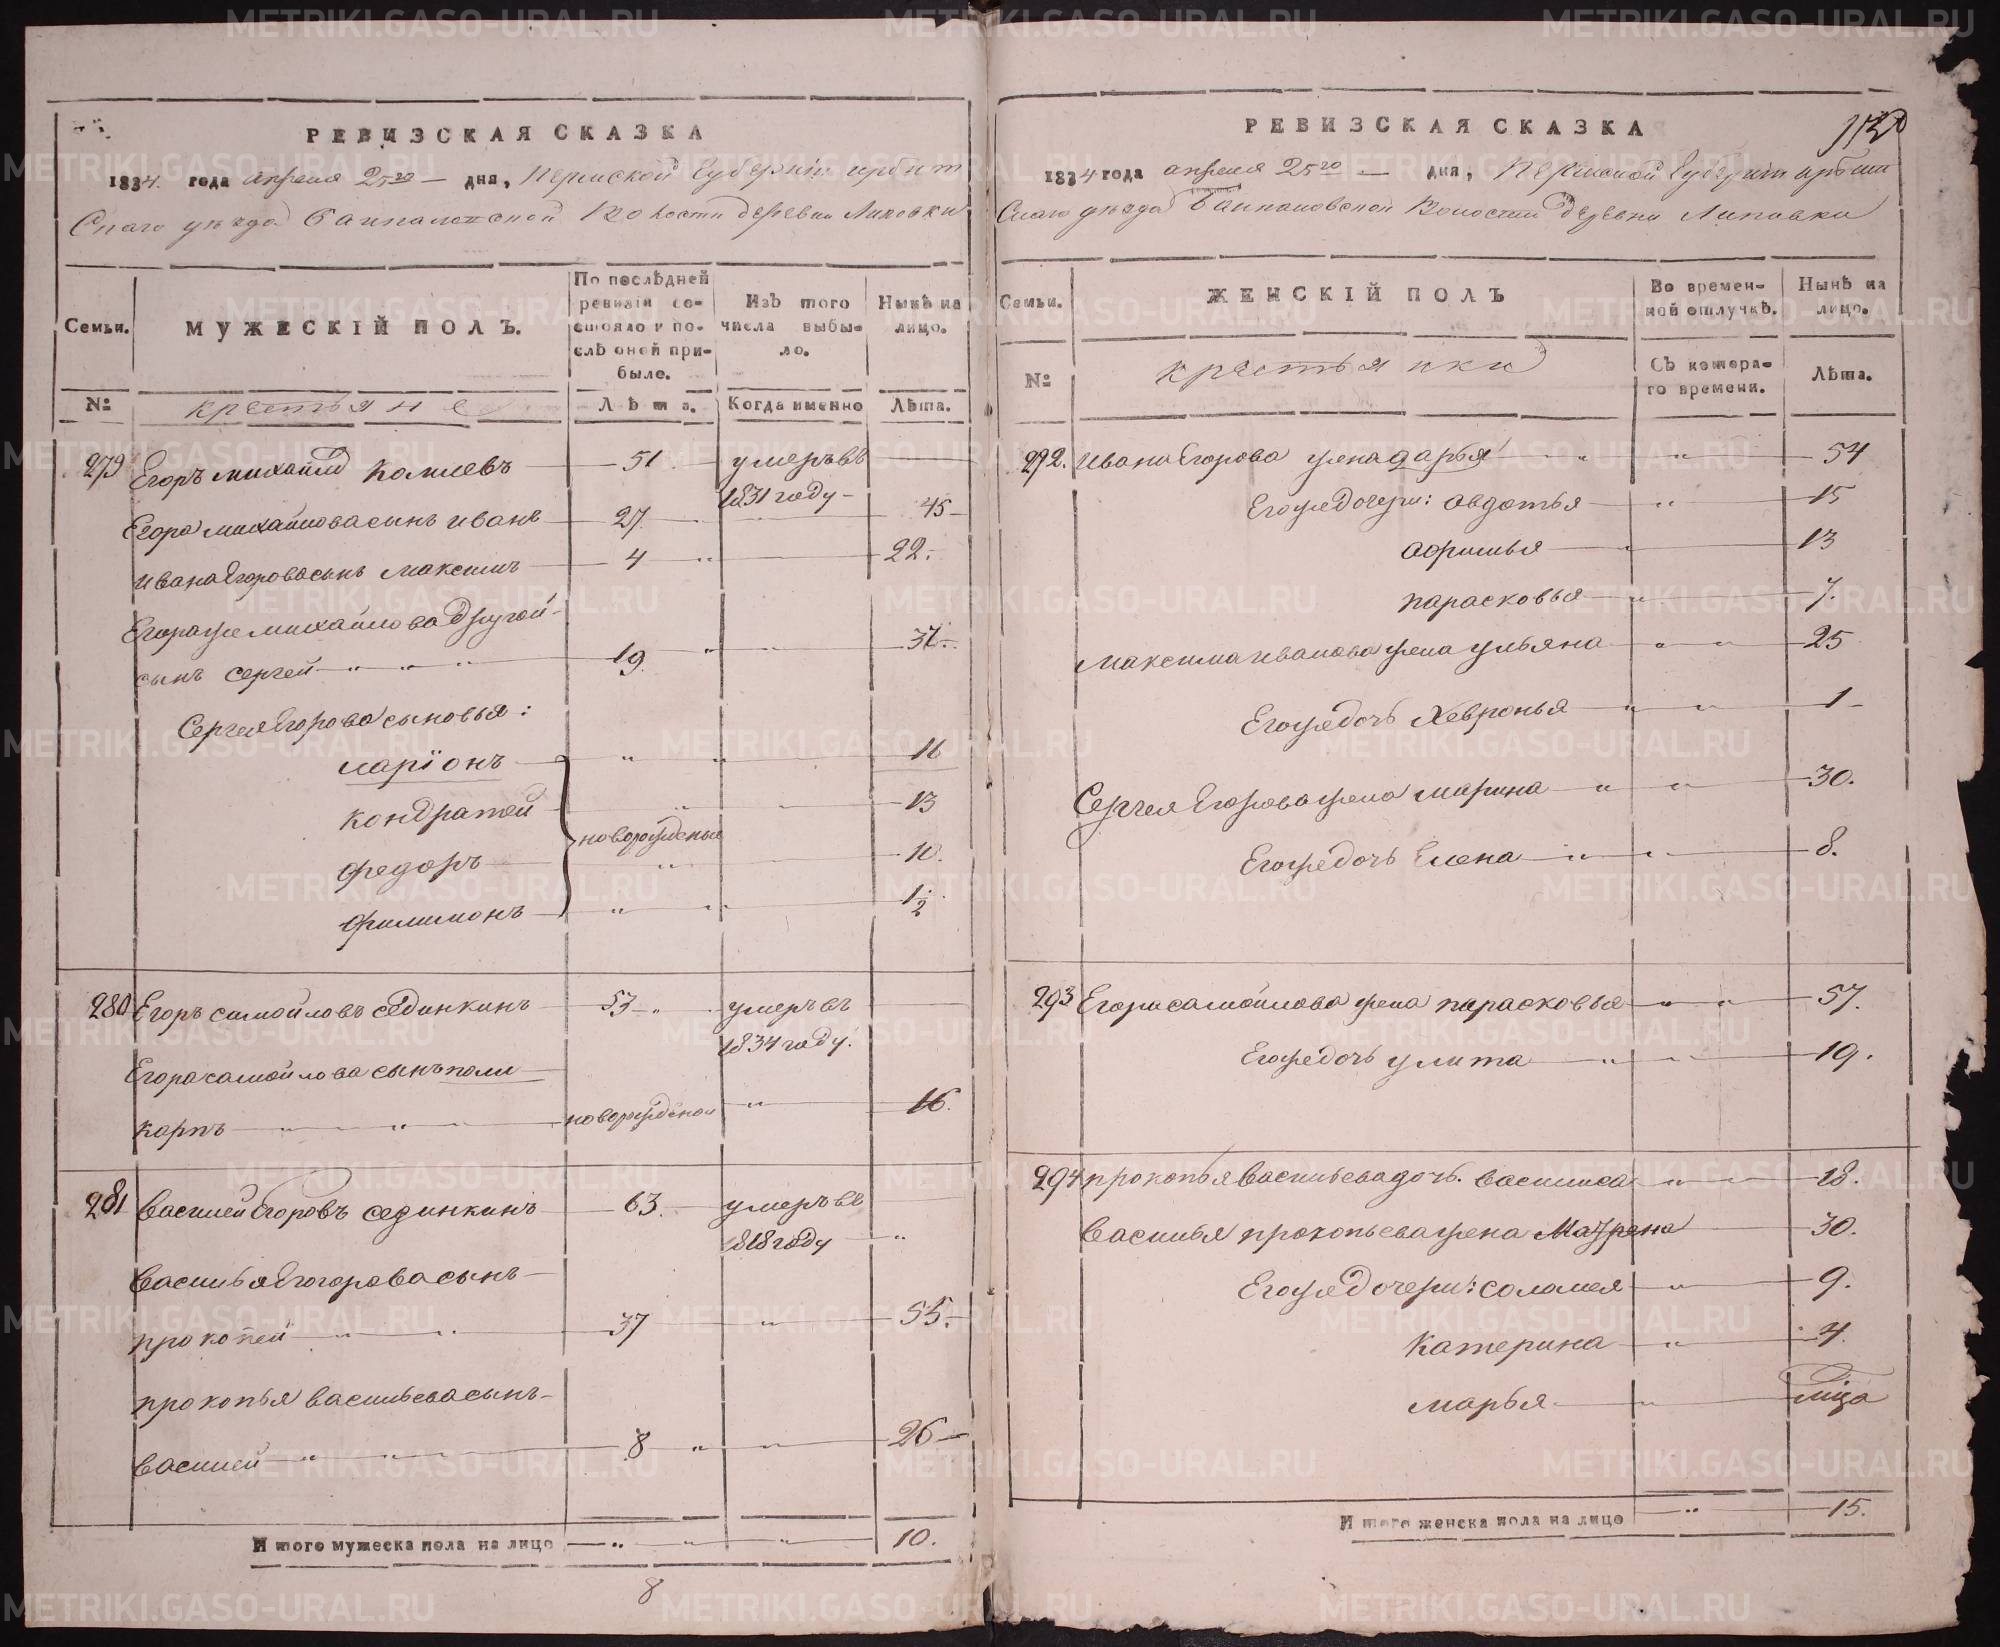 РЕВИЗСКАЯ СКАЗКА
1834. года апреля 25го дня, Пермской Губернiи ирбит
Скаго уезда Волости деревни Липовки
Семьи.
МУЖЕСКIЙ ПОЛЪ.
По послѣдней ревизiи состояло и послѣ оной прибыло.
Изъ того числа выбыло.
Нынѣ на лицо.
№
крестьяне
Лѣта.
Когда именно
Лѣта.
279 Егоръ михайлов 51 умеръ въ
1831 году
Егора михайлова сынъ иванъ 27 45
ивана Егорова сынъ максимъ 4 22.
Егора же михайлова другой
сынъ сергей 19 37.
Сергея Егорова сыновья:
ларiонъ 16
кондратей 13
новорожденые
федоръ 10.
филимонъ 1/2
280 Егоръ самойловъ сединкинъ 53 умеръ въ
1834 году.
Егора самойлова сынъ поли
карпъ новорожденой 16.
281 Василей Егоровъ сединкинъ 63. умеръ въ
1818 году
Василья Егорова сынъ
прокопей 37 55.
прокопья васильева сынъ
василей 8 26
Итого мужеска пола на лицо 10.
8
РЕВИЗСКАЯ СКАЗКА
1834 года апреля 25го дня, Пермской Губернiи ирбит
Скаго уезда Волости деревни Липовки
Семьи.
ЖЕНСКIЙ ПОЛЪ
Во временной отлучкѣ.
Нынѣ на лицо.
№
крестьянки
Съ котораго времени.
Лѣта.
292. ивана Егорова жена дарья 54
Его же дочери: авдотья 15
13
парасковья 7.
максима иванова жена ульяна 25
Его же дочь Хевронья 1
Сергея Егорова жена марина 30.
Его же дочь Елена 8.
293 Егора самойлова жена парасковья 57.
Его же дочь улита 19.
294 прокопья Васильева дочь. василиса 18.
Василья прокопьева жена Матрена 30.
Его же дочери: соломея 9.
катерина 4.
марья
Итого женска пола на лицо 15.